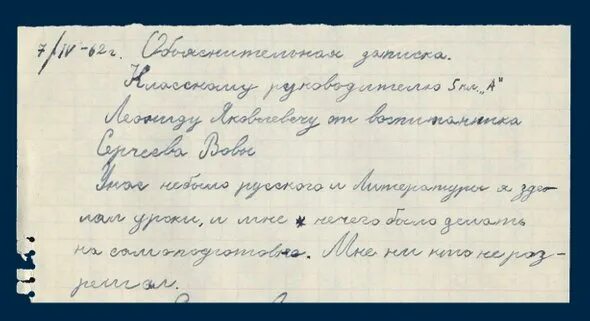 7/IV-62 г. Объяснительная записка.
Классному руководителю 5 кл. "А"
Леониду Яковлевичу от воспитанника
Сергеева Вовы
Унас небыло русского и Литературы я зде-
лал уроки, и мне нечего было делать
на самоподготовке. Мне ни кто не раз-
решал.